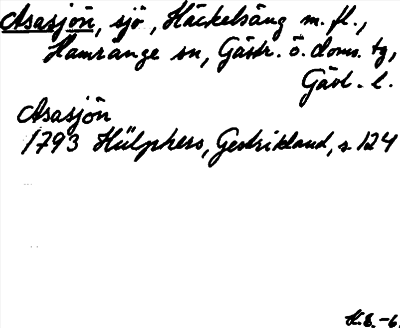 Asasjön, sjö, Häckelsäng m. fl.,
Hamrånge sn, Gästr. ö. doms. tg,
Gävl. l.
Asasjön
1793 Hülphers, Gestrikland, s 124